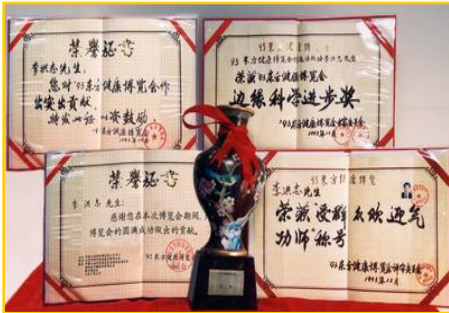 荣誉证书
李洪志先生:
您对'93东方健康博览会作
出突出贡献,
特发此证以资鼓励。
'93东方健康博览会
1993年12月
'93东方健康博览
李洪志先生
荣获'93东方健康博览会
边缘科学进步奖
'93东方健康博览会
1993年12月
荣誉证书
李洪志 先生:
感谢您在本次博览会期间,
博览会的圆满成功做出的贡献。
'93东方健康博览
'93东方健康博览
李洪志先生
荣获"受群众欢迎气
功师"称号
'93东方健康博览会评审委员会
1993年12月